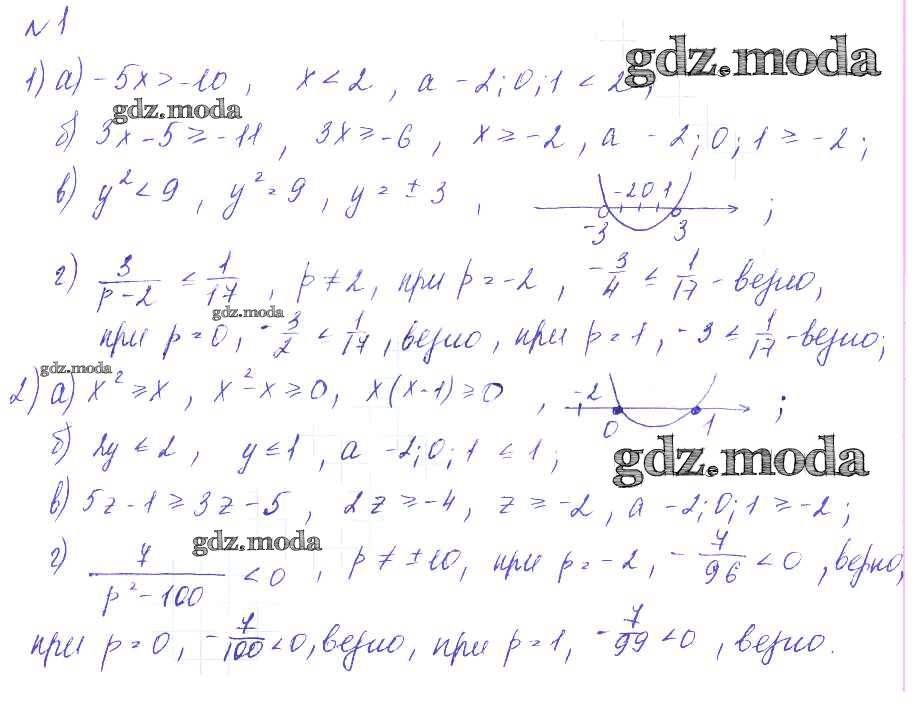 № 1
gdz.moda
1) а) -5x > -10, x < 2, а -2; 0; 1 < 2;
gdz.moda
б) 3x - 5 ≥ -11, 3x ≥ -6, x ≥ -2, а -2; 0; 1 ≥ -2;
в) y² < 9, y² = 9, y = ± 3, -2 0 1 ;
-3 3
г) 3/(p-2) ≤ 1/17, p ≠ 2, при p = -2, -3/4 ≤ 1/17 - верно,
gdz.moda
при p = 0, -3/2 ≤ 1/17, верно, при p = 1, -3 ≤ 1/17 - верно;
gdz.moda
2) а) x² ≥ x, x² - x ≥ 0, x(x-1) ≥ 0, -2 ;
0 1
б) 2y ≤ 2, y ≤ 1, а -2; 0; 1 ≤ 1;
gdz.moda
в) 5z - 1 ≥ 3z - 5, 2z ≥ -4, z ≥ -2, а -2; 0; 1 ≥ -2;
gdz.moda
г) 7/(p² - 100) < 0, p ≠ ±10, при p = -2, -7/96 < 0, верно,
при p = 0, -7/100 < 0, верно, при p = 1, -7/99 < 0, верно.